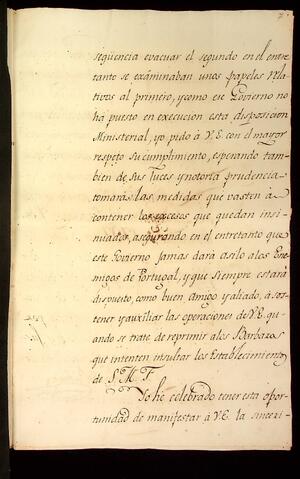 seqüencia evacuar el segundo en el entre
tanto se exâminaban unos papeles rela
tivos al primero, y como ese Govierno no
há puesto en execucion esta disposicion
Ministerial, yo pido à V.E. con el mayor
respeto su cumplimiento, esperando tam
bien de sus luces y notoria prudencia
tomará las medidas que vasten à
contener los excesos que quedan insi
nuados, asegurando en el entretanto que
este Govierno jamas dará asilo a los Ene
migos de Portugal, y que siempre estará
dispuesto, como buen amigo y aliado, à sos
tener y auxîliar las operaciones de V.E. qu
ando se trate de reprimir a los Barbaros
que intenten insultar los Establecimientos
de S. M. F.
Yo he celebrado tener esta opor
tunidad de manifestar à V.E. la sinceri-